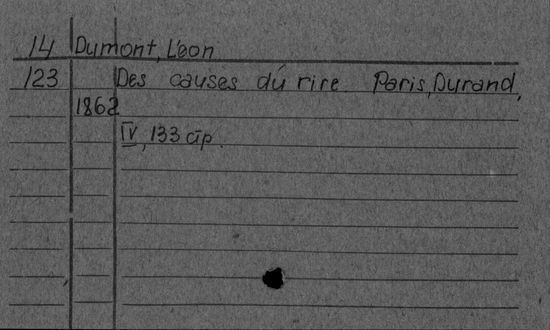 14 Dumont, Léon
123 Des causes du rire Paris, Durand,
1862
IV, 133 стр.